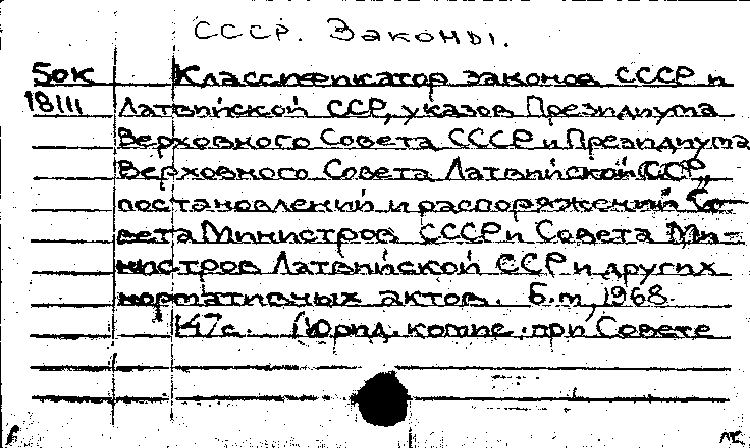 СССР. Законы.
50К Классификатор законов СССР и
18111 Латвийской ССР, указов Президиума
Верховного Совета СССР и Президиума
Верховного Совета Латвийской ССР,
постановлений и распоряжений Со-
вета Министров СССР и Совета Ми-
нистров Латвийской ССР и других
нормативных актов. Б.м., 1968.
147с. (Юрид. комис. при Совете